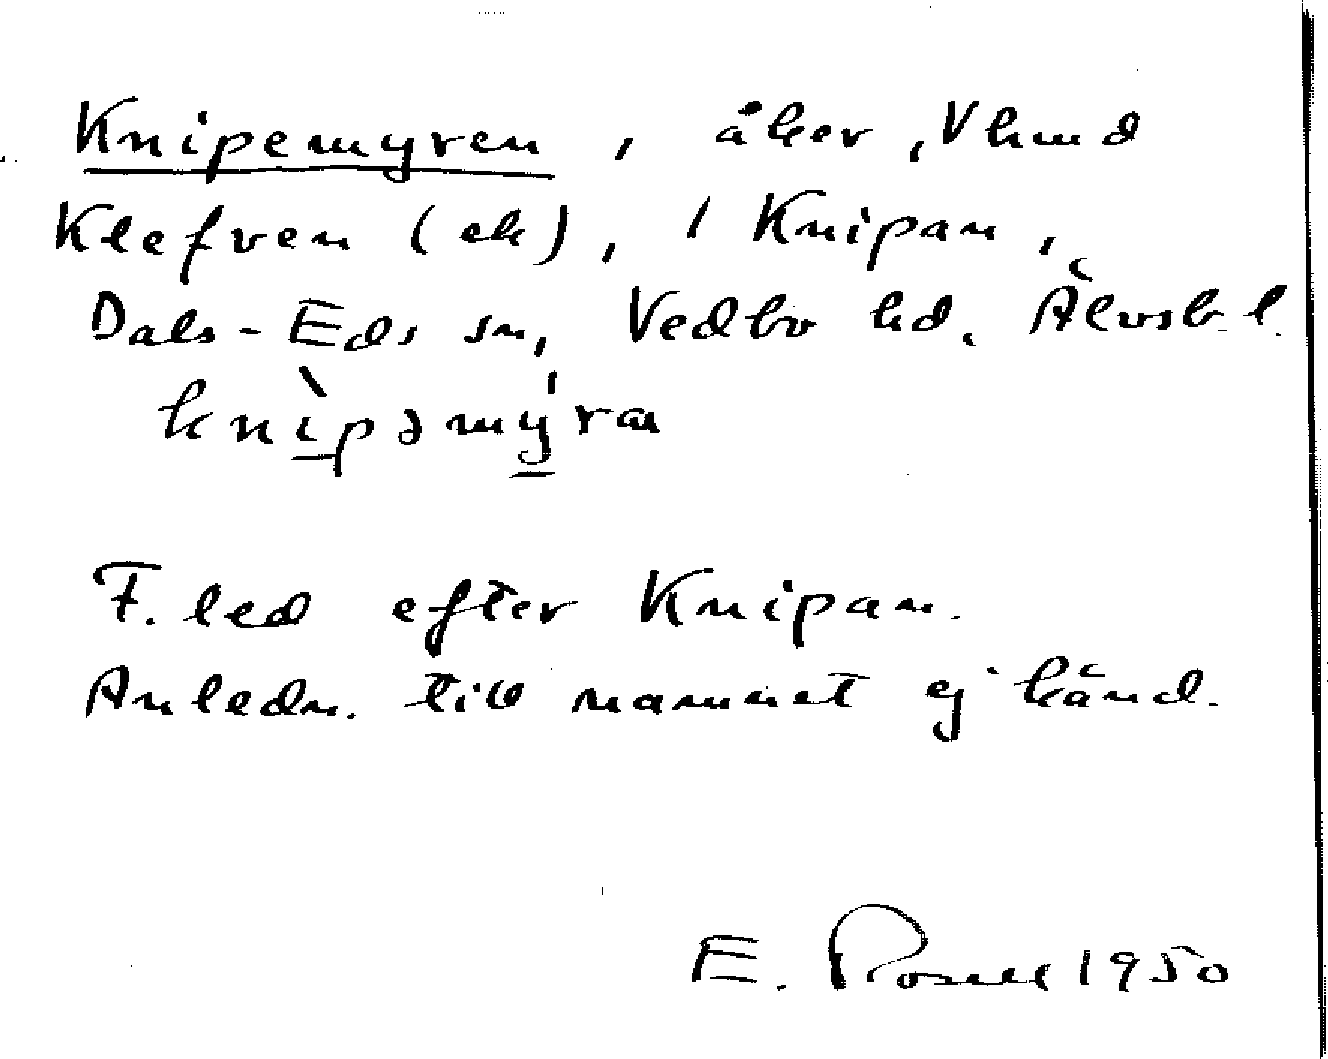 Knipemyren, åker, V kund
Klefven (ek), 1 Knipan,
Dals-Eds sn, Vedbo hd. Älvsb. l.
knìpəmýra
F. led efter Knipan.
Anledn. till namnet ej känd.
E. Rosell 1950